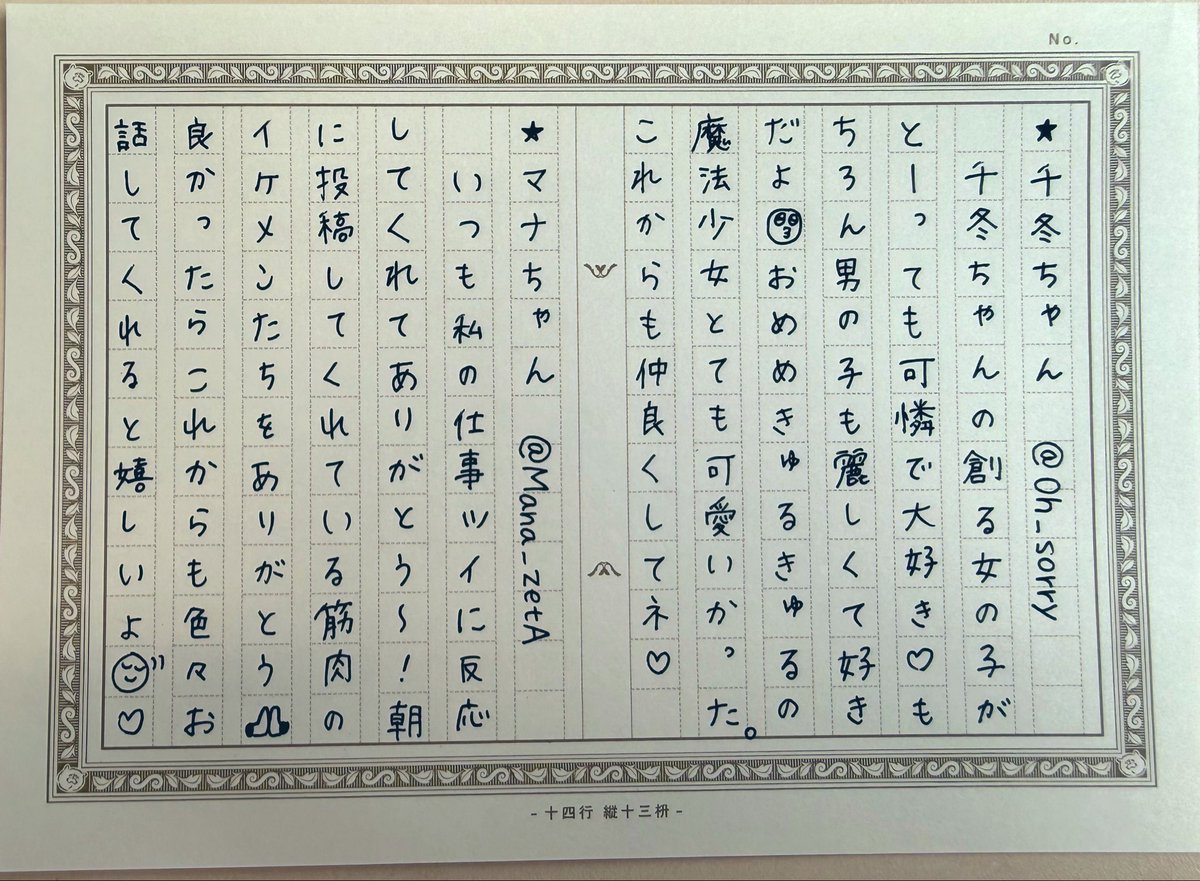 No.
★千冬ちゃん @Oh_sorry
千冬ちゃんの創る女の子が
とーっても可憐で大好き♡も
ちろん男の子も麗しくて好き
だよおめめきゅるきゅるの
魔法少女とても可愛いかった。
これからも仲良くしてネ♡
★マナちゃん @Mana_zetA
いつも私の仕事ツイに反応
してくれてありがとう〜！朝
に投稿してくれている筋肉の
イケメンたちをありがとう
良かったらこれからも色々お
話してくれると嬉しいよ♡
- 十四行 縦十三枡 -